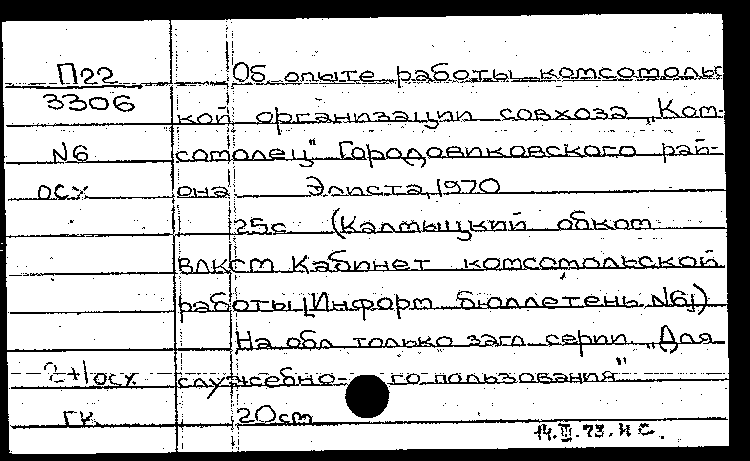 П22 Об опыте работы комсомольс
3306 кой организации совхоза „Ком-
N6 сомолец" Городовиковского рай-
осх она Элиста, 1970
25с (Калмыцкий обком
ВЛКСМ Кабинет комсомольской
работы [Информ бюллетень N6])
На обл только загл серии „Для
2+1осх служебно-го пользования"
ГК 20см
14.III.73. Н С.